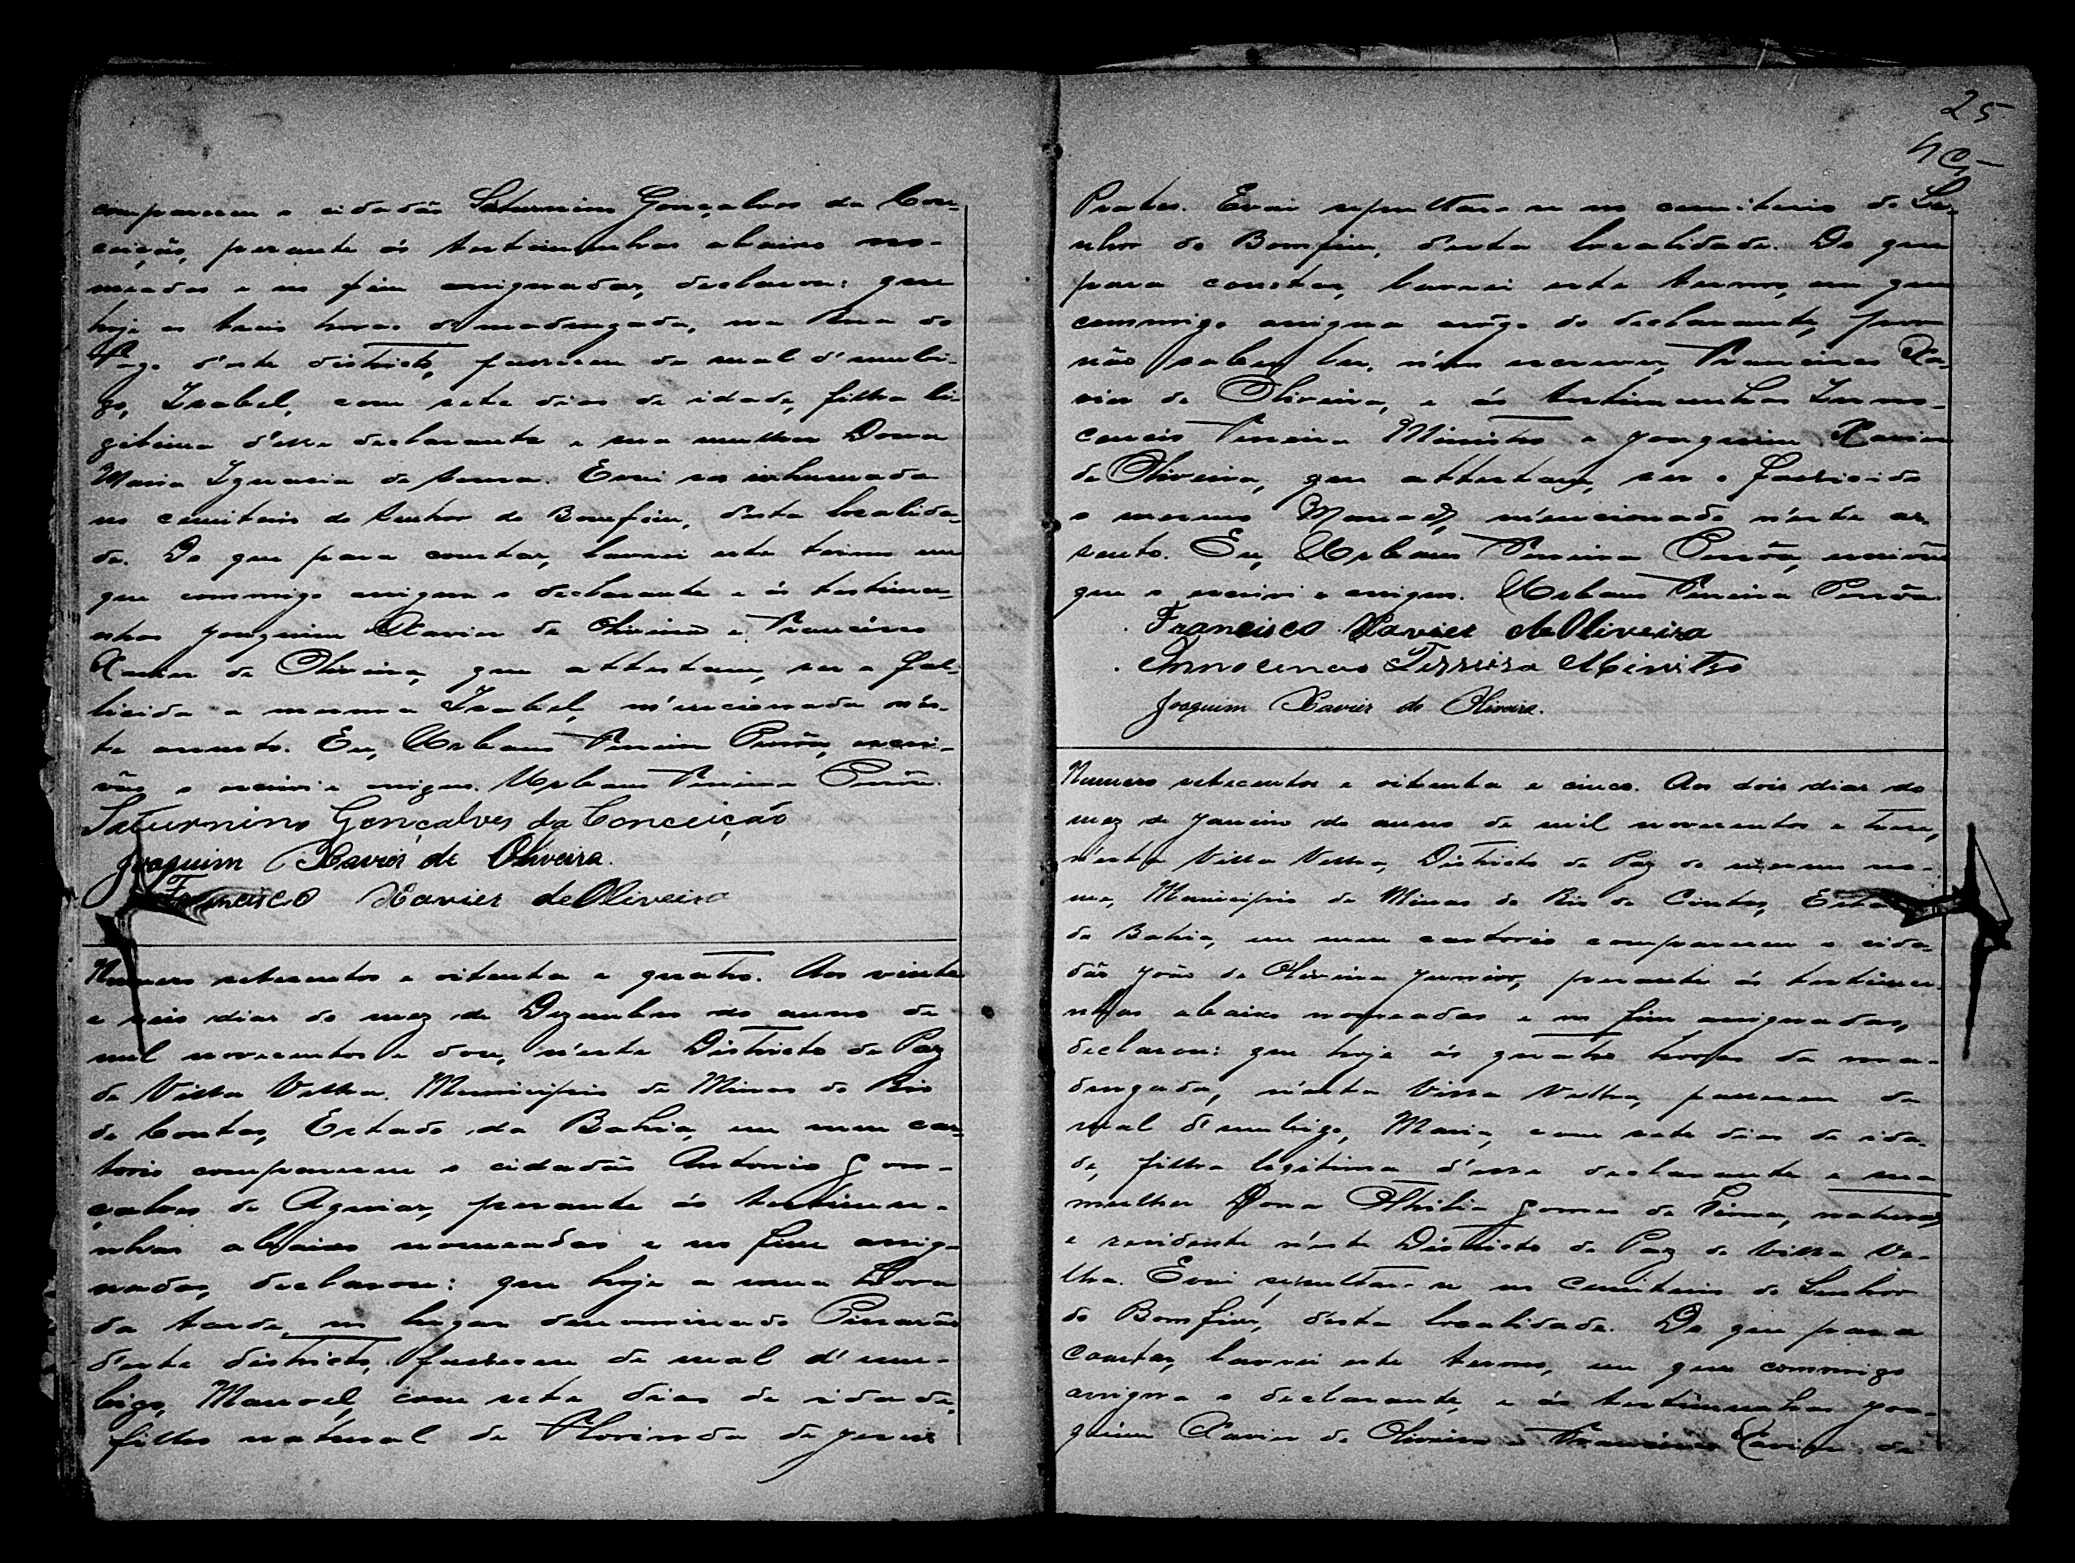 compareceu o cidadão Saturnino Gonçalves da Con-
ceição, perante ás testimunhas abaixo no-
meadas e no fim assignadas, declarou: que
hoje as treis horas da madrugada, na Rua do
d'este districto, falleceu de mal d'umbi-
go, Izabel, com sete dias de idade, filha li-
gitima d'elle declarante e sua mulher Dona
Maria Ignacia de Souza. E vai ser inhumada
no cemiterio do Senhor do Bomfim, desta localida-
de. Do que para constar, lavrei este termo em
que commigo assigna o declarante e ás testimu-
nhas Joaquim Xavier de Oliveira e Francisco
Xavier de Oliveira, que attestam, ser a fal-
licida a mesma Izabel, m'encionada n'es-
te assento. Eu, Urbano Pereira, escri-
vão o escrivi e assigno. Urbano Pereira
Saturnino Gonçalves da Conceição
Joaquim Xavier de Oliveira.
Francisco Xavier de Oliveira
Numero setecentos e oitenta e quatro. Aos vinte
e seis dias do mez de Dezembro do anno de
mil novecentos e doze, n'este Districto de Paz
de Villa Velha, Municipio de Minas do Rio
de Contas, Estado da Bahia, em meu car-
torio compareceu o cidadão Antonio Gon-
çalves de Aguiar, perante ás testimu-
nhas abaixo nomeadas e no fim assig-
nadas, declarou: que hoje a uma hora
da tarde, no lugar denominado
d'este districto, falleceu de mal d'um-
bigo, Manoel, com sete dias de idade,
filho natural de Florinda de Jesus
25
Prates. E vai sepultar-se no cemiterio do Se-
nhor do Bomfim, d'esta localidade. Do que
para constar, lavrei este termo, em que
commigo assigna a rôgo do declarante, por
não saber ler, n'em escrever, Francisco Xa-
vier de Oliveira, e ás testimunhas Inno-
cencio Ferreira Ministro e Joaquim Xavier
de Oliveira, que attestam, ser o fallicido
o mesmo Manoel, m'encionado n'este as-
sento. Eu, Urbano Pereira, escrivão
que o escrivi e assigno. Urbano Pereira
Francisco Xavier de Oliveira
Innocencio Ferreira Ministro
Joaquim Xavier de Oliveira.
Numero setecentos e oitenta e cinco. Aos dois dias do
mez de Janeiro do anno de mil novecentos e treze,
n'esta Villa Velha, Districto de Paz do mesmo no-
me, Municipio de Minas do Rio de Contas, Estado
da Bahia, em meu cartorio compareceu o cida-
dão João de Oliveira Junior, perante ás testimu-
nhas abaixo nomeadas e no fim assignadas,
declarou: que hoje ás quatro horas da ma-
drugada, n'esta Villa Velha, falleceu de
mal d'umbigo, Maria, com sete dias de ida-
de, filha legitima d'esse declarante e sua
mulher Dona Othilia Gomes de, naturaes
e residente n'este Districto de Paz de Villa Ve-
lha. E vai sepultar-se no cemiterio do Senhor
do Bomfim, d'esta localidade. Do que para
constar, lavrei este termo, em que commigo
assigna o declarante, e ás testimunhas Joa-
quim Xavier de Oliveira e Francisco Xavier de